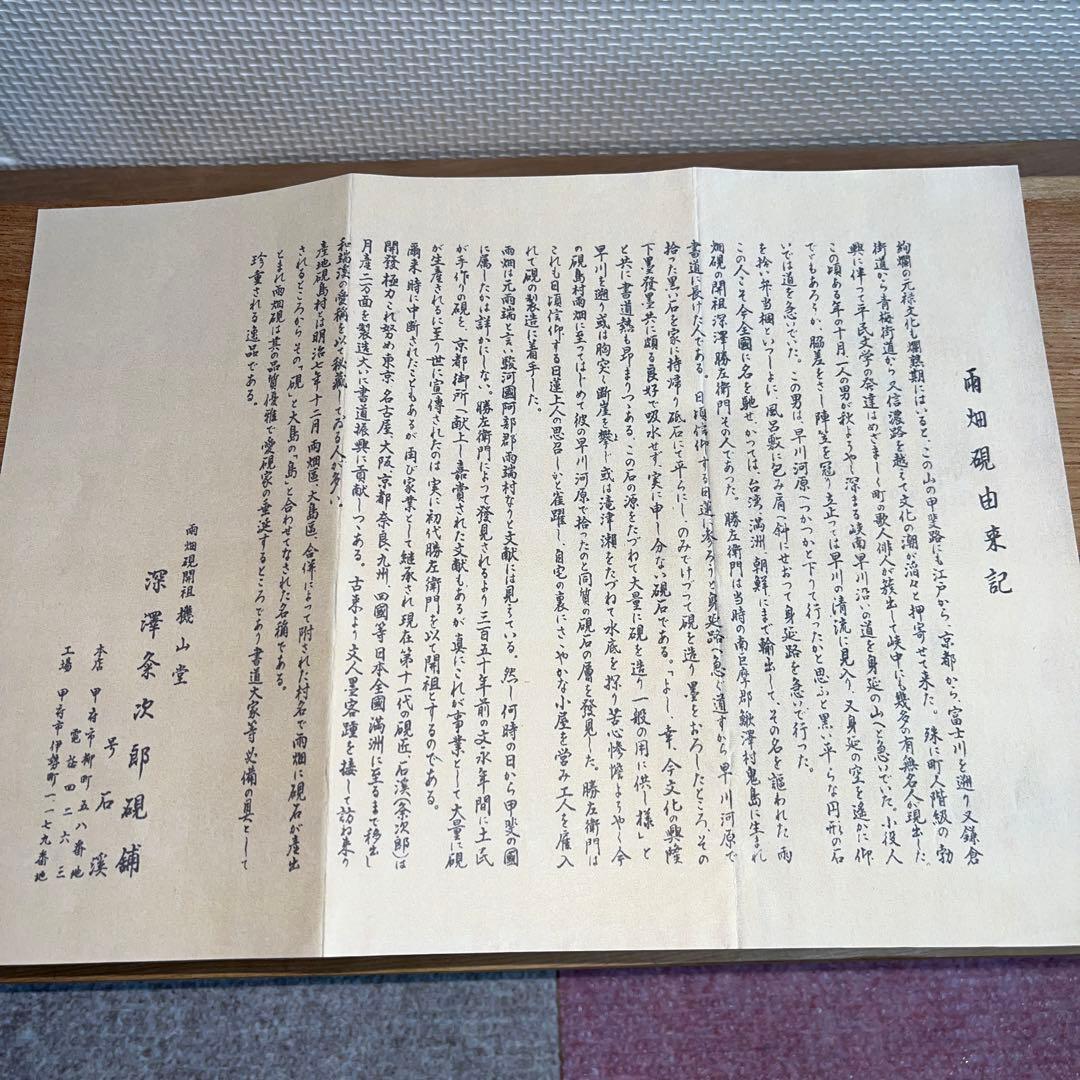 雨畑硯由来記
絢爛の元禄文化も爛熟期にはいると、この山の甲斐路にも江戸から、京都から富士川を遡り又鎌倉
街道から青梅街道から又信濃路を越えて文化の潮が滔々と押寄せて来た。殊に町人階級の勃
興に伴って平民文学の発達はめざましく町の歌人俳人が簇出して峡中にも幾多の有無名人が現出した。
この頃ある年の十月一人の男が秋ようやく深まる峡南早川沿いの道を身延の山へと急いでいた。小役人
でゞもあろうか、脇差をさし陣笠を冠り立止っては早川の清流に見入り、又身延の空を遙かに仰
いでは道を急いでいた。この男は早川河原へつかつかと下りて行ったかと思ふと黒い平らな円形の石
を拾い弁当梱といっしょに、風呂敷に包み肩へ斜にせおって身延路を急いで行った。
この人こそ今全国に名を馳せ、かつては、台湾、満洲、朝鮮にまで輸出して、その名を謳われた雨
畑硯の開祖深澤勝左衛門その人であった。勝左衛門は当時の南巨摩郡鰍澤村鬼島に生まれ
書道に長けた人である。日頃信仰する日蓮に参ろうと身延路へ急ぐ道すから早川河原で
拾った黒い石を家に持帰り砥石にて平らにし、のみてけづって硯を造り墨をおろしたところ、その
下墨發墨共に頗る良好で吸水せず実に申し分ない硯石である。「よし、幸、今文化の興隆
と共に書道熱も昂まりつゝある、この石の源をたづねて大量に硯を造り一般の用に供し様」と
早川を遡り或は胸突く断崖を攀じ或は滝津瀬をたづねて水底を探り苦心惨憺ようやく今
の硯島村雨畑に至ってはじめて彼の早川河原で拾ったのと同質の硯石の層を発見した。勝左衛門は
これも日頃信仰する日蓮上人の思召しかと雀躍し、自宅の裏にさゝやかな小屋を営み工人を雇入
れて硯の製造に着手した。
雨畑は元雨端と言い駿河國阿部郡雨端村なりと文献には見えている。然し何時の日から甲斐の國
に属したかは詳かにしない。勝左衛門によって発見されるより三百五十年前の文永年間に土民
が手作りの硯を、京都御所へ献上し嘉賞された文献もあるが真にこれが事業として大量に硯
が生産されるに至り世に宣傳されたのは実に初代勝左衛門を以て開祖とするのである。
爾来時に中断されたこともあるが再び家業として継承され現在第十一代の硯匠、石溪(条次郎)は
開發極力これ努め東京、名古屋、大阪、京都、奈良、九州、四國等日本全國満洲に至るまで移出し
月産二万面を製造大いに書道振興に貢献しつゝある。古来より文人墨客踵を接して訪ね来り
和端溪の愛稱を以て秘蔵しておる人が多い。
産地硯島村とは明治七年十二月雨畑區、大島區、合併によって附された村名で雨畑に硯石が産出
されるところからその「硯」と大島の「島」と合わせてなされた名稱である。
とまれ雨畑硯は其の品質優雅で愛硯家の垂涎するところであり書道大家等必備の具として
珍重される逸品である。
雨畑硯開祖 機山堂
深澤条次郎硯舖
号 石溪
本店 甲府市柳町五八番地
電話 四二六三
工場 甲府市伊勢町一一七九番地